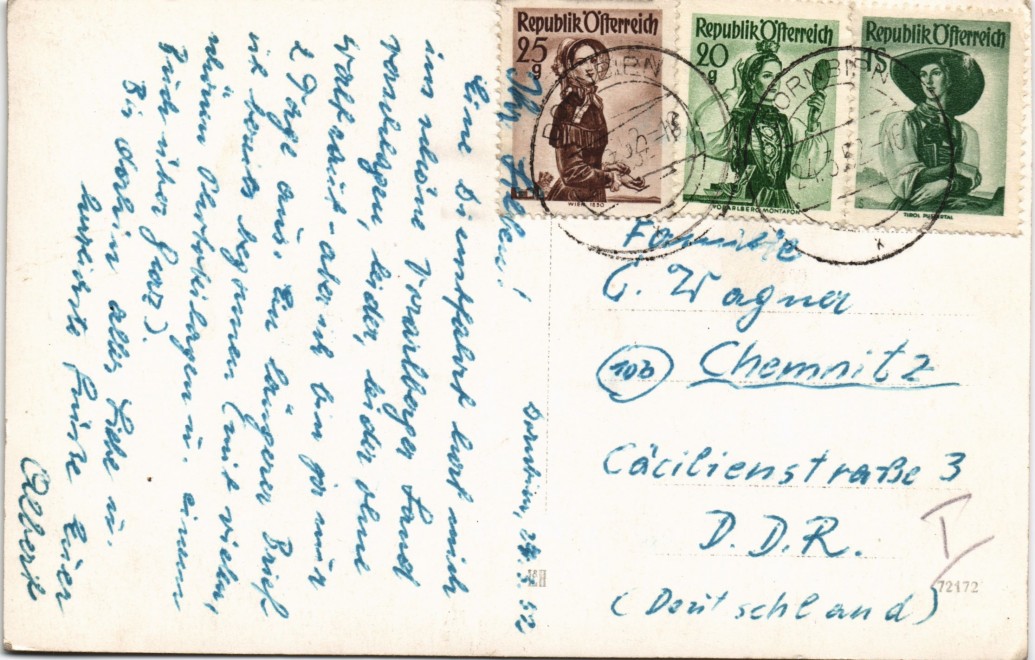 Republik Österreich
25
g
WIEN 1850
Republik Österreich
20
g
VORARLBERG MONTAFON
Republik Österreich
1S
TIROL PUSTERTAL
DORNBIRN
DORNBIRN
Dornbirn, 52
Ihr Lieben!
Eine Dienstfahrt führt mich
ins schöne Vorarlberger Land
vorarlbergen, leider, leider ohne
Waltraut - aber ich bin ja nur
2 Tage aus. Ein längerer Brief
ist bereits begonnen (mit vielen,
schönen Photobeilagen u. einem
Buch über Graz).
Bis dorthin alles Liebe u.
herzliche Grüße Euer
Albert
Familie
G. Wagner
(10b) Chemnitz
Cäcilienstraße 3
D.D.R.
(Deutschland)
72172